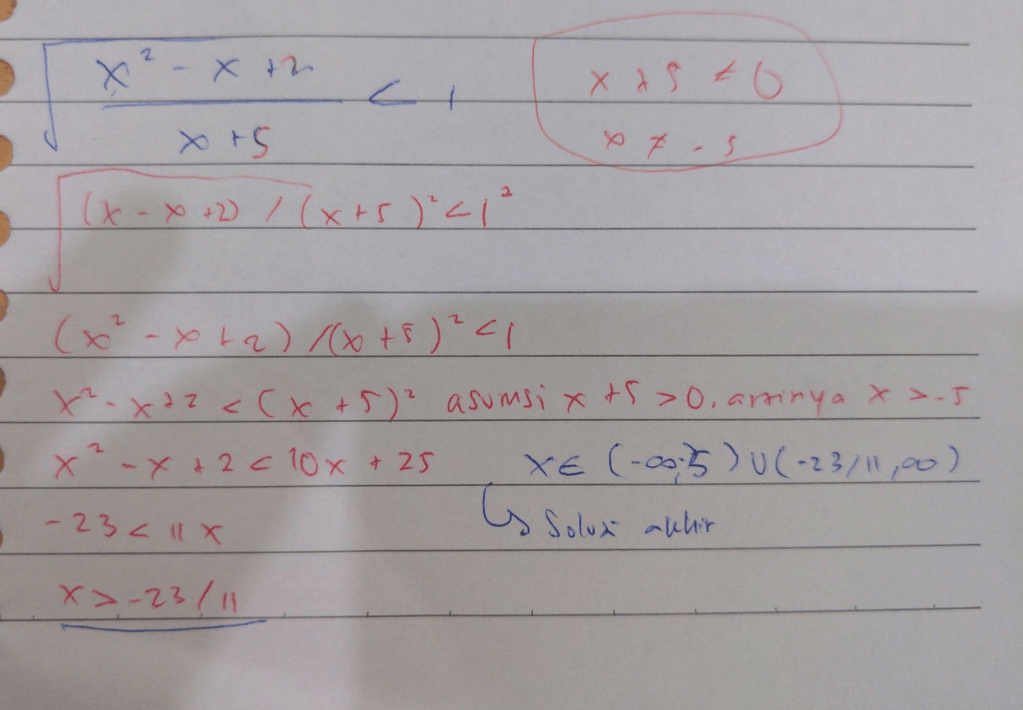 √(x² - x + 2)/(x + 5) < 1
x + 5 ≠ 0
x ≠ -5
√(x - x + 2) / (x + 5)² < 1²
(x² - x + 2) / (x + 5)² < 1
x² - x + 2 < (x + 5)² asumsi x + 5 > 0. artinya x > -5
x² - x + 2 < 10x + 25
x ∈ (-∞; 5) ∪ (-23/11, ∞)
-23 < 11x
↳ Solusi akhir
x > -23/11